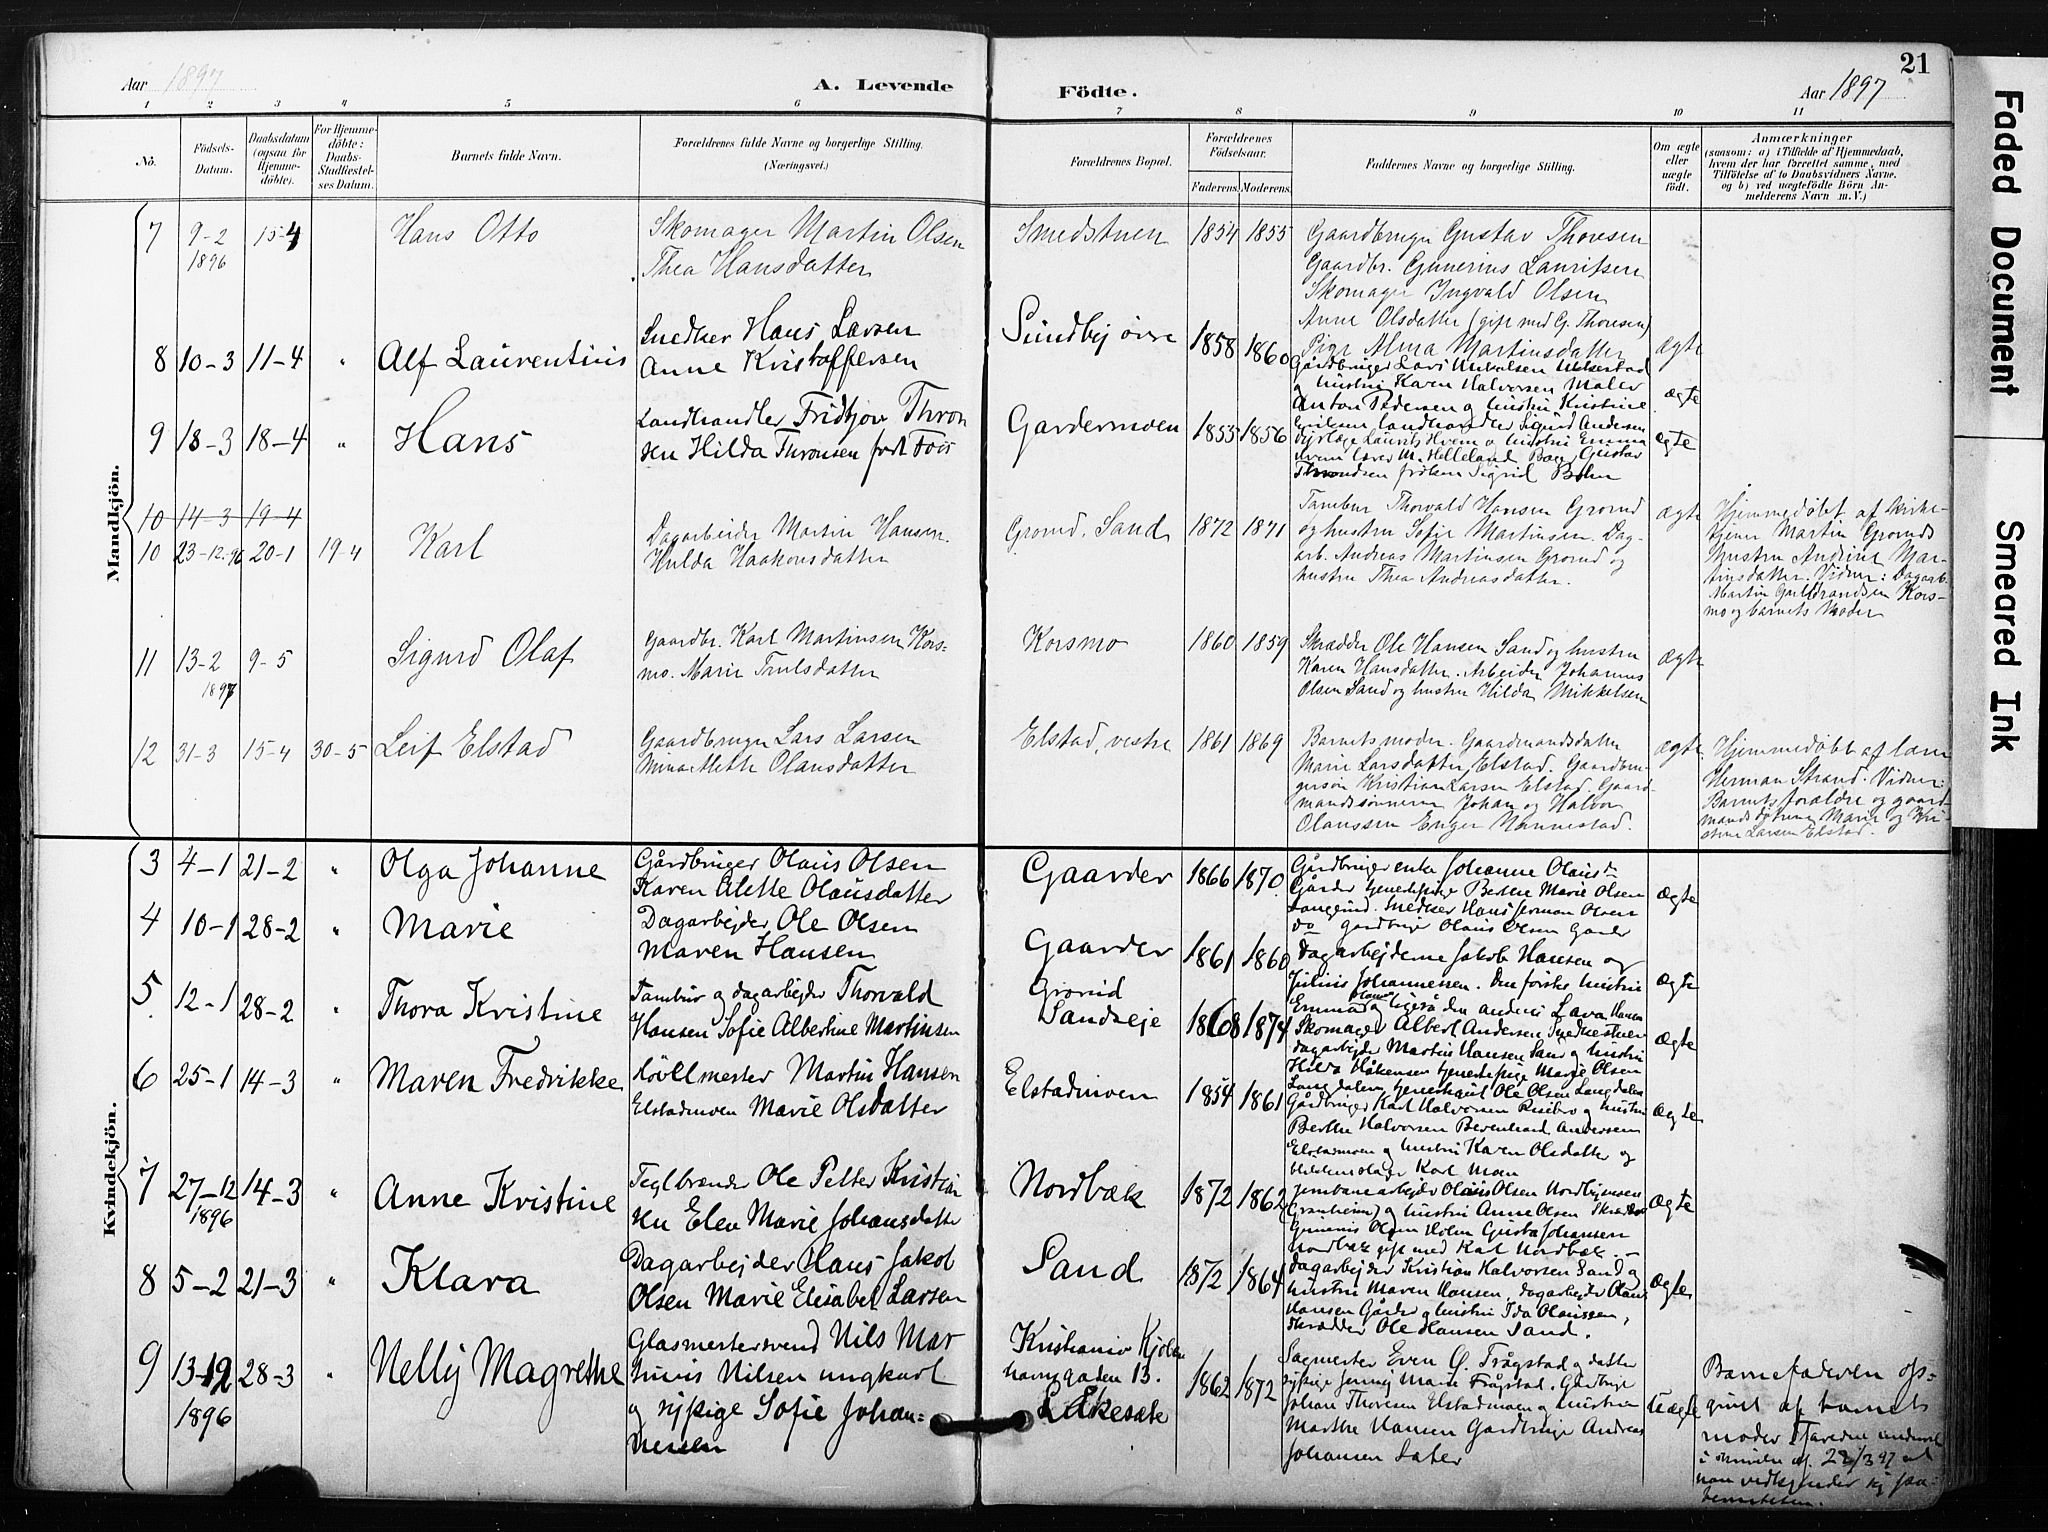 Aar 1897
A. Levende
Födte.
21
Aar 1897
1 2 3 4 5 6 7 8 9 10 11
No.
Födsels-Datum.
Daabsdatum (ogsaa for Hjemme-döbte).
For Hjemme-döbte: Daabs-Stadfæstel-ses Datum.
Barnets fulde Navn.
Forældrenes fulde Navne og borgerlige Stilling. (Næringsvei.)
Forældrenes Bopæl.
Forældrenes Födselsaar.
Faderens. Moderens.
Faddernes Navne og borgerlige Stilling.
Om ægte eller uægte födt.
Anmærkninger
(saasom: a) i Tilfælde af Hjemmedaab, hvem der har forrettet samme, med Tilföielse af to Daabsvidners Navne. og b) ved uægtefödte Börn An-melderens Navn m.V.)
Mandkjön.
7 9-2 1896 15-4 Hans Otto
Skomager Martin Olsen
Thea Hansdatter
Smedstuen 1854 1855
Gaardbruger Gustav Thoresen
Gaardbr. Gunerius Lauritsen
Skomager Ingvald Olsen
Anne Olsdatter (gift med G. Thoresen)
Pige Alma Martinsdatter
ægte
8 10-3 11-4 " Alf Laurentius
Snedker Hans Larsen
Anne Kristoffersen
Sundby övre 1858 1860
Gårdbruger Lars
hustru Karen Halvorsen Maler
Anton Pedersen og hustru Kristine
ægte
9 18-3 18-4 " Hans
Landhandler Fridtjov Thron
sen Hilda Thronsen født
Gardermoen 1855 1856
landhandler Sigurd Andersen
Dyrlæge Laurits Hvem og hustru Emma
Hvem lærer M. Helleland Gustav
Throndsen frøken Sigrid
ægte
10 14-3 19-4
10 23-12-96 20-1 19-4 Karl
Dagarbeider Martin Hansen.
Hulda Haakonsdatter
Gromd. Sand 1872 1871
Tambur Thorvald Hansen Gromd
og hustru Sofie Martinsen. Dag-
arb. Andreas Martinsen Gromd og
hustru Thea Andreasdatter.
ægte
Hjemmedøbt af Kirke-
tjener Martin Gromds
hustru Andrine Mar-
tinsdatter. Vidner: Dagarb.
Martin Guldbrandsen Kors-
mo og barnets moder
11 13-2 1897 9-5 Sigurd Olaf
Gaardbr. Karl Martinsen Kors-
mo. Marie Trulsdatter
Korsmo 1860 1859
Skrædder Ole Hansen Sand og hustru
Karen Hansdatter. Arbeider Johannes
Olsen Sand og hustru Hilda Mikkelsen
ægte
12 31-3 15-4 30-5 Leif Elstad
Gaardbruger Lars Larsen
Mina Mette Olausdatter
Elstad, vestre 1861 1869
Barnets moder. Gaardmandsdatter
Marie Larsdatter Elstad. Gaardbru-
gersøn Kristian Larsen Elstad. Gaard-
mandssønnerne Johan og Halvor
Olaussen Enger Nannestad.
ægte
Hjemmedøbt af lærer
Herman Strand. Vidner:
Barnets forældre og gaard-
mandsdøtrene Marie og Kri-
stine Larsen Elstad.
Kvindekjön.
3 4-1 21-2 " Olga Johanne
Gårdbruger Olaus Olsen
Karen Alette Olausdatter
Gaarder 1866 1870
Gårdbruger enke Johanne Olausdr
Gårder tjenestepige Berthe Marie Olsen
Snedker Hans Herman Olsen
do gårdbruger Olaus Olsen Gårder
ægte
4 10-1 28-2 " Marie
Dagarbejder Ole Olsen
Maren Hansen
Gaarder 1861 1860
Dagarbejderne Jakob Hansen og
Julius Johannessen. Den første hustru
Emma og ligeså den anden Lava Hansen
ægte
5 12-1 28-2 " Thora Kristine
Tambur og dagarbejder Thorvald
Hansen Sofie Albertine Martinsen
Gromd
Sandseje 1868 1874
Skomager Albert Andersen Smedstuen
dagarbejder Martin Hansen Sand og hustru
Hilda Håkensen tjenestepige Marie Olsen
Langdalen tjenestkarl Ole Olsen Langdalen
ægte
6 25-1 14-3 " Maren Fredrikke
Möllmester Martin Hansen
Elstadmoen Marie Olsdatter
Elstadmoen 1854 1861
Gårdbruger Karl Halvorsen Risebro og hustru
Berthe Halvorsen Berenhard Andersen
Elstadmoen og hustru Karen Olsdatter og
Karl Moen
ægte
7 27-12 1896 14-3 " Anne Kristine
Teglbrænder Ole Petter Kristian
sen Elen Marie Johansdatter
Nordbæk 1872 1862
Jernbanearbejder Olaus Olsen Nordbymoen
(Grønheim) og hustru Anne Olsen Skrædder
Gunerius Olsen Holm Gusta Johansen
Nordbæk gift med Karl Nordbæk.
ægte
8 5-2 21-3 " Klara
Dagarbejder Hans Jakob
Olsen Marie Elisabet Larsen
Sand 1872 1864
Dagarbejder Kristian Halvorsen Sand og
hustru Maren Hansen, dagarbejder Olaus
Hansen Gårder og hustru Ida Olaussen,
Skrædder Ole Hansen Sand.
ægte
9 13-12 1896 28-3 " Nelly Magrethe
Glasmestersvend Nils Mar
tinius Nilsen ungkarl
og sypige Sofie Johan=
nessen
Kristiania Kjøben
havngaden 13.
Låkesæte 1862 1872
Sagmester Even G. Trågstad og datter
sypige Jenny Marie Trågstad. Gårdbruger
Johan Thoresen Elstadmoen og hustru
Marthe Hansen Gårdbruger Andreas
Johansen Sater
Uægte
Barnefaderen op-
givet af barnets
moder
22/3 97
Faded Document
Smeared Ink